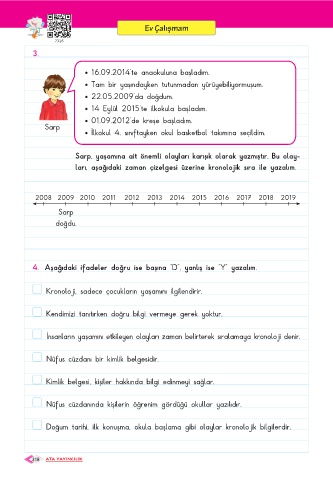 Ev Çalışmam
3.
• 16.09.2014'te anaokuluna başladım.
• Tam bir yaşındayken tutunmadan yürüyebiliyormuşum.
• 22.05.2009'da doğdum.
• 14 Eylül 2015'te ilkokula başladım.
• 01.09.2012'de kreşe başladım.
• İlkokul 4. sınıftayken okul basketbol takımına seçildim.
Sarp
Sarp, yaşamına ait önemli olayları karışık olarak yazmıştır. Bu olay-
ları, aşağıdaki zaman çizelgesi üzerine kronolojik sıra ile yazalım.
2008 2009 2010 2011 2012 2013 2014 2015 2016 2017 2018 2019
Sarp
doğdu.
4. Aşağıdaki ifadeler doğru ise başına "D", yanlış ise "Y" yazalım.
Kronoloji, sadece çocukların yaşamını ilgilendirir.
Kendimizi tanıtırken doğru bilgi vermeye gerek yoktur.
İnsanların yaşamını etkileyen olayları zaman belirterek sıralamaya kronoloji denir.
Nüfus cüzdanı bir kimlik belgesidir.
Kimlik belgesi, kişiler hakkında bilgi edinmeyi sağlar.
Nüfus cüzdanında kişilerin öğrenim gördüğü okullar yazılıdır.
Doğum tarihi, ilk konuşma, okula başlama gibi olaylar kronolojik bilgilerdir.
ATA YAYINCILIK